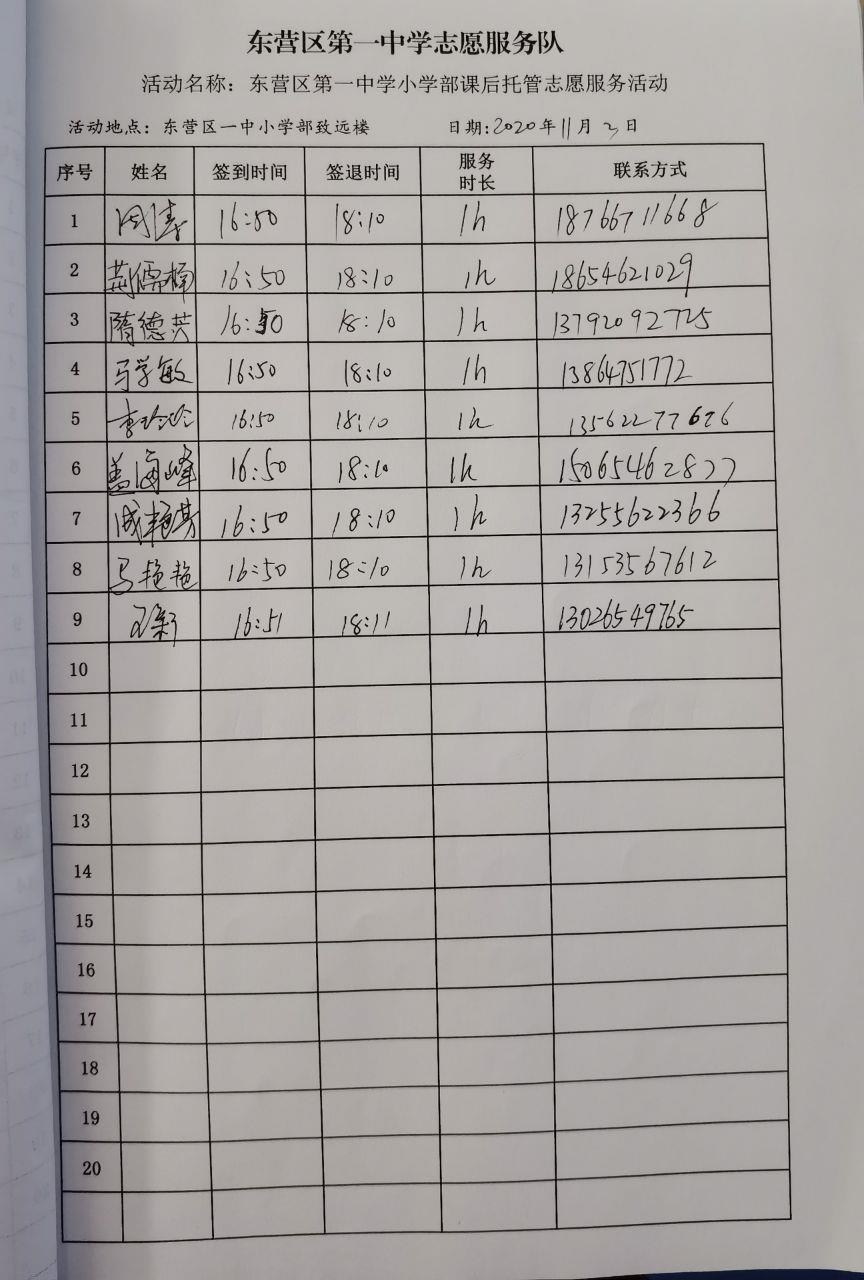 东营区第一中学志愿服务队
活动名称：东营区第一中学小学部课后托管志愿服务活动
活动地点：东营区一中小学部致远楼 日期:2020年11月3日
序号 姓名 签到时间 签退时间 服务时长 联系方式
1 周涛 16:50 18:10 1h 18766711668
2 荆儒楠 16:50 18:10 1h 18654621029
3 隋德芸 16:50 18:10 1h 13792092725
4 马学敏 16:50 18:10 1h 13864751772
5 李玲玲 16:50 18:10 1h 13562277676
6 盖海峰 16:50 18:10 1h 15065462877
7 成艳芳 16:50 18:10 1h 13255622366
8 马艳艳 16:50 18:10 1h 13153567612
9 16:51 18:11 1h 13026549765
10
11
12
13
14
15
16
17
18
19
20